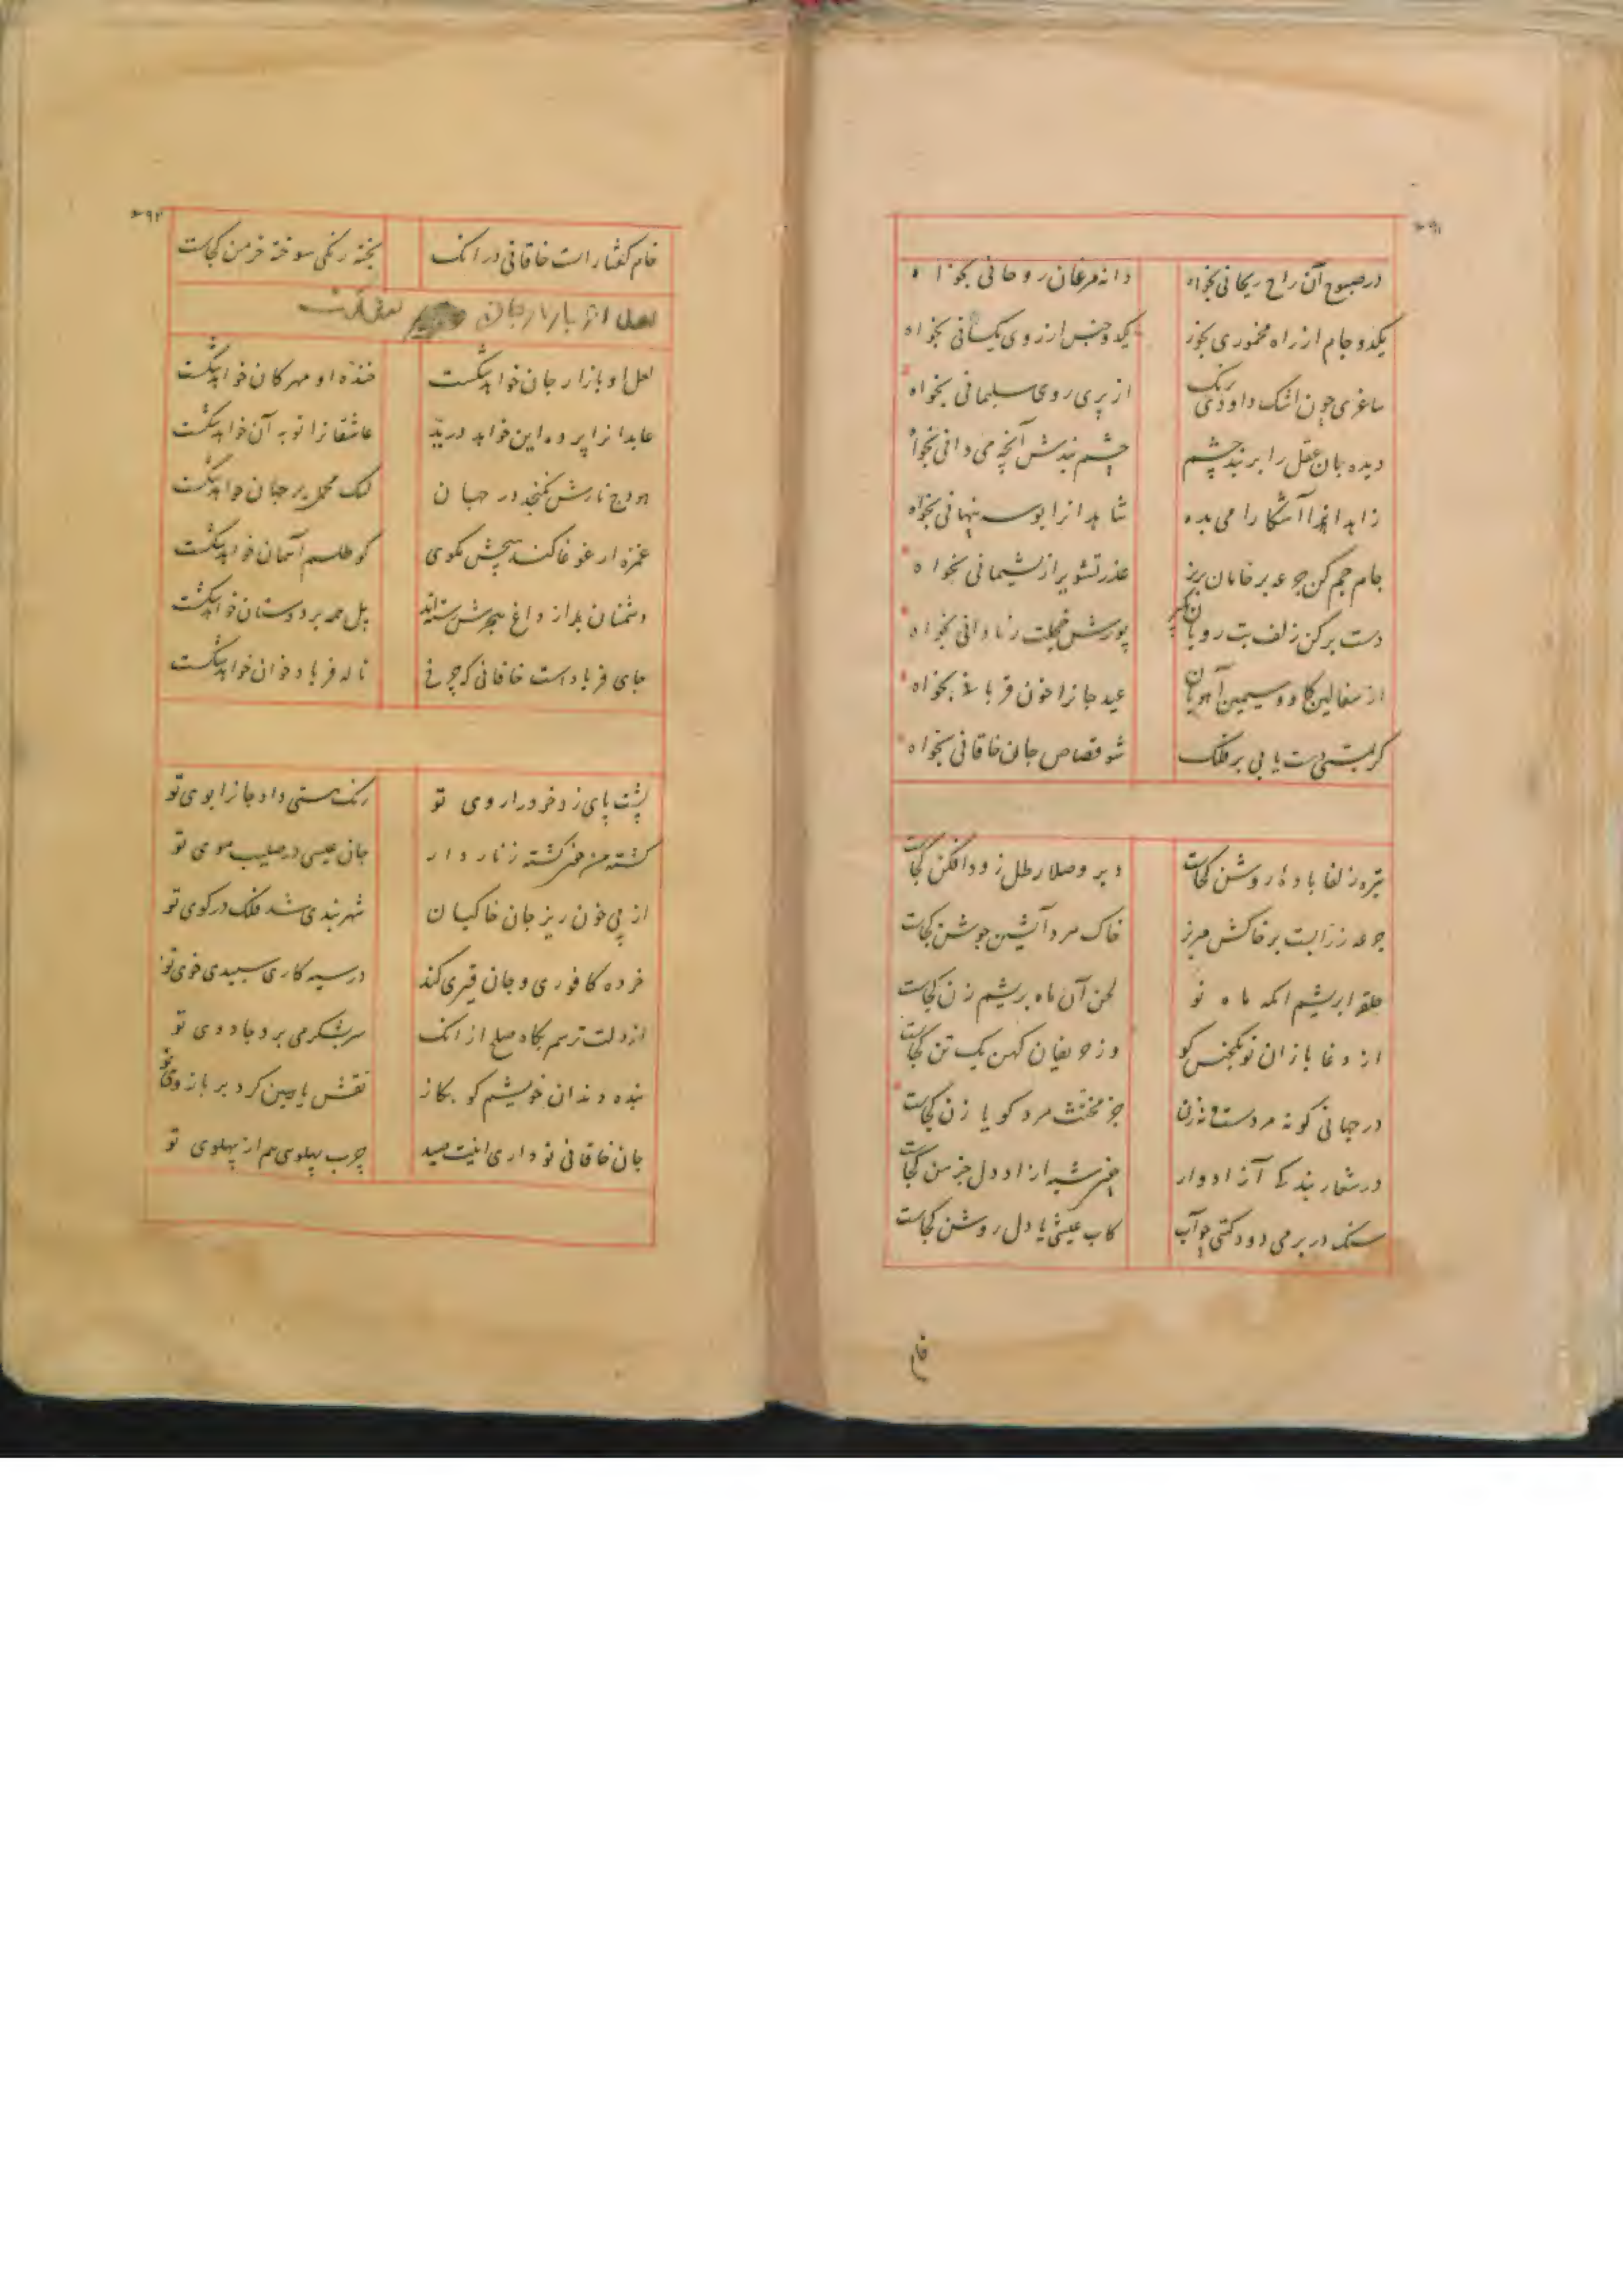 در صبوح آن راح ریحانی بخواه
دانه مرغان روحانی بخواه
یکدو جام از راه مخموری بخور
یکدو جنس از روی یکسانی بخواه
ساغری چون اشک داودی رنگ
از پری روی سلیمانی بخواه
دیده بان عقل را بربند چشم
چشم بندش آنچه می دانی بخواه
زاهدانرا آشکارا می بده
شاهدانرا بوسه پنهانی بخواه
جام جم کن جرعه بر خامان بریز
عذر تشویر از پشیمانی بخواه
دست بر کن زلف بت رویان بگیر
پوزش خجلت ز نادانی بخواه
از سفالین گاو و سیمین آهوان
عید جانرا خون قربانی بخواه
گر بمستی دست یابی بر فلک
شو قصاص جان خاقانی بخواه
تیره زلفا باده روشن کجاست
دیر وصلا رطل زودافکن کجاست
جرعه زرابست بر خاکش مریز
خاک مرد آتشین جوشن کجاست
حلقه ابریشم اکه ماه نو
لحن آن ماه بریشم زن کجاست
از دغا بازان نو یکجنس کو
وز حریفان کهن یک تن کجاست
در جهانی کو نه مردست و نه زن
جز مخنث مرد کو یا زن کجاست
در شمار بندگی آزادوار
ازاد دل جز من کجاست
سنک در بر می دود گیتی چو آب
کاب عیشی یا دل روشن کجاست
خام
۹۲
خام گفتار است خاقانی در انک
پخته رنگی سوخته خرمن کجاست
لعل او بازار جان خواهد شکست
لعل او بازار جان خواهد شکست
خنده او مهر کان خواهد شکست
عابدانرا پرده این خواهد درید
عاشقانرا توبه آن خواهد شکست
هودج نازش نگنجد در جهان
لنگ محمل بر جهان خواهد شکست
غمزه ار غوغا کند هیچش مگوی
کو طلسم آسمان خواهد شکست
دشمنان از داغ هجرش رسته اند
پل همه بر دوستان خواهد شکست
جای فریاد است خاقانی که چرخ
ناله فریاد خوان خواهد شکست
پشت پای زد خرد را روی تو
رنک مستی داد جانرا بوی تو
کشته من خضر کشته زناردار
جان عیسی در صلیب موی تو
از پی خون ریز جان خاکیان
شهربندی شد فلک در کوی تو
خرده کافوری و جان قیری کند
در سیه کاری سپیدی خوی تو
از دلت ترسم بگاه صلح از انک
سر بشکر می برد جادوی تو
بنده دندان خویشم کو بگاز
نقش یاسین کرد بر بازوی تو
جان خاقانی تو داری اینت صید
چرب پهلوی هم از پهلوی تو